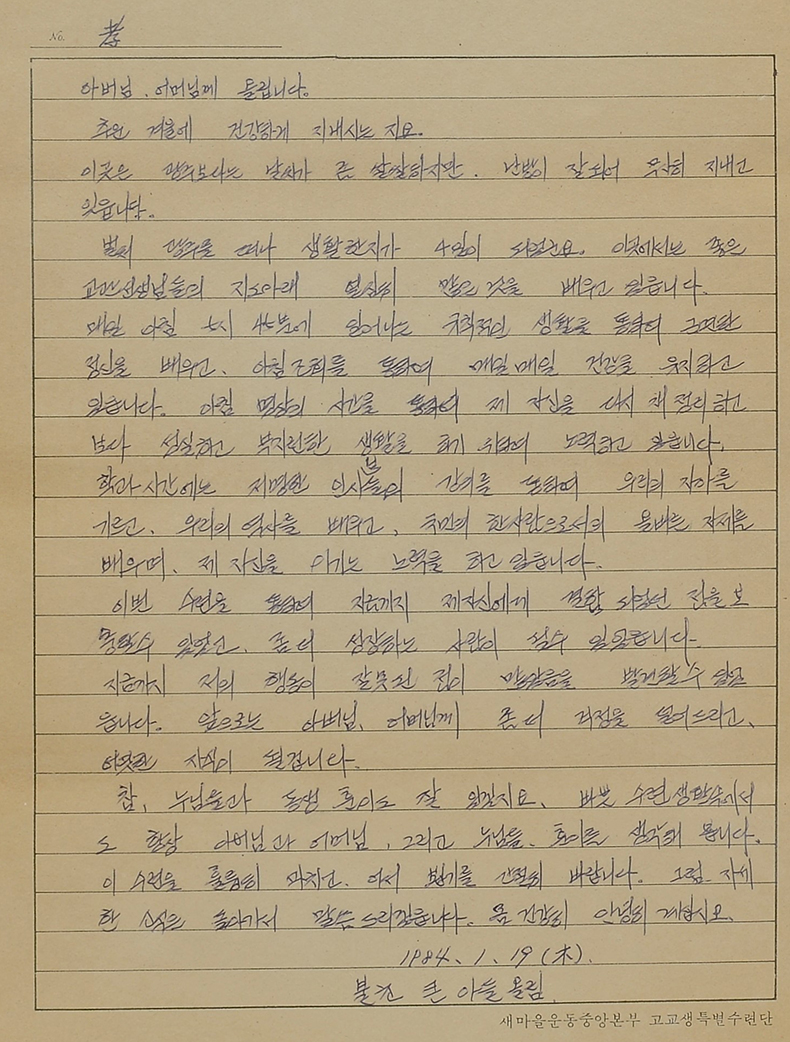 No. 孝
아버님, 어머님께 드립니다.
추운 겨울에 건강하게 지내시는지요.
이곳은 광주보다는 날씨가 좀 쌀쌀하지만, 난방이 잘되어 무사히 지내고
있읍니다.
벌써 광주를 떠나 생활한지가 4일이 되었군요. 이곳에서는 좋은
교관선생님들의 지도아래 열심히 많은 것을 배우고 있읍니다.
매일 아침 5시 45분에 일어나는 규칙적인 생활을 통하여 근면한
정신을 배우고, 아침조회를 통하여 매일매일 건강을 유지하고
있읍니다. 아침 명상의 시간을 통하여 제 자신을 다시 재정리하고
보다 성실하고 부지런한 생활을 하기 위하여 노력하고 있읍니다.
학과시간에는 저명한 인사분들의 강의를 통하여 우리의 자아를
기르고, 우리의 역사를 배우고, 국민의 한사람으로서의 올바른 자세를
배우며, 제 자신을 이기는 노력을 하고 있읍니다.
이번 수련을 통하여 지금까지 제자신에게 결함 되었던 점을 보
충할수 있었고, 좀 더 성장하는 사람이 될수 있겠읍니다.
지금까지 저의 행동이 잘못된 점이 많았음을 발견할 수 있었
읍니다. 앞으로는 아버님, 어머님께 좀 더 걱정을 덜어드리고,
떳떳한 자식이 될겁니다.
참, 누님들과 동생 훈이도 잘 있겠지요. 바쁜 수련생활속에서
도 항상 아버님과 어머님, 그리고 누님들, 훈이를 생각해 봅니다.
이 수련을 훌륭히 마치고, 어서 뵙기를 간절히 바랍니다. 그럼 자세
한 소식은 돌아가서 말씀드리겠읍니다. 몸 건강히 안녕히 계십시요.
1984. 1. 19 (木).
불효 큰 아들 올림.
새마을운동중앙본부 고교생특별수련단